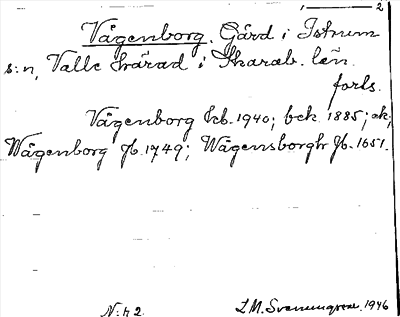 2
Vågenborg. Gård i Istrum
s:n, Valle härad i Skarab. län.
forts.
Vågenborg kb. 1940; bek. 1885; ek,
Wågenborg Jb. 1749; Wågensborgh Jb. 1651.
N:r 2. L.M. Svenungsson. 1946